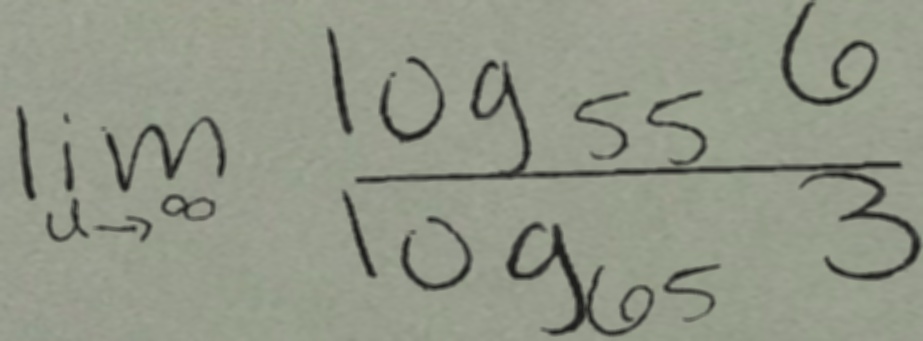 lim u→∞ log₅₅ 6 / log₆₅ 3